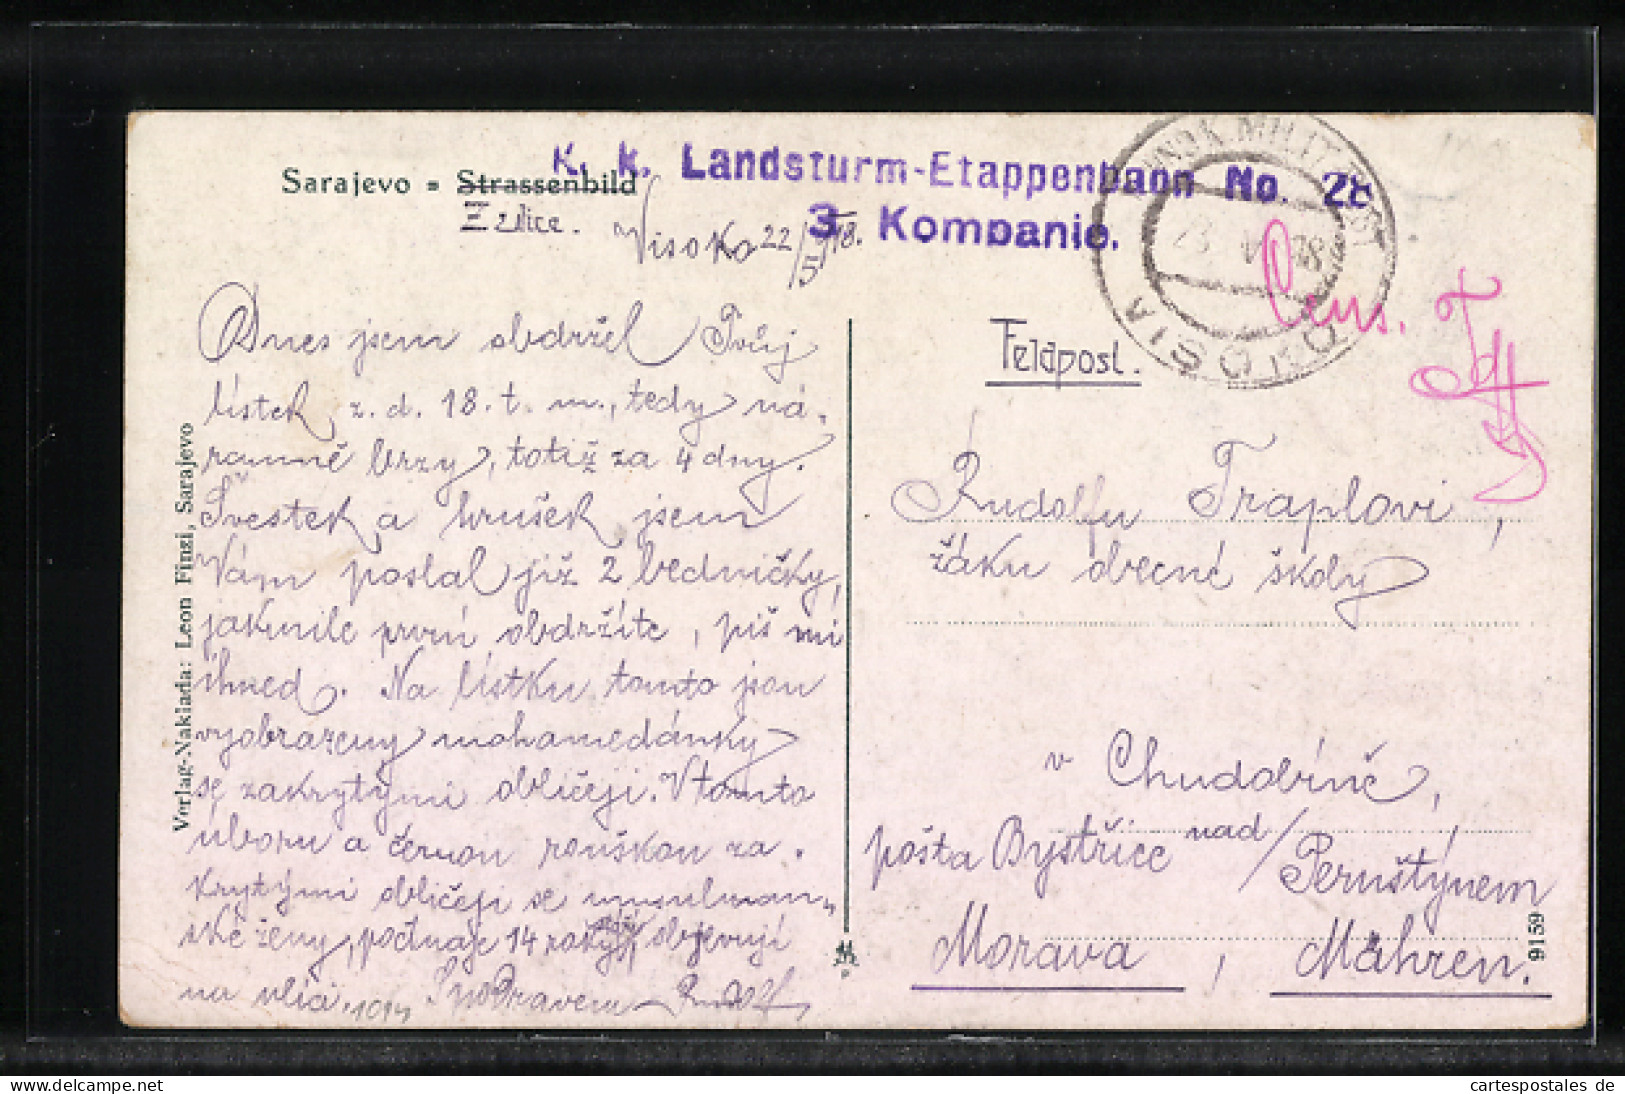 Sarajevo = Strassenbild
Z ulice.
K. k. Landsturm-Etappenbaon No. 28
3. Kompanie.
Visoko 22/5 18.
K.UND K. MILIT. POST
23. V. 18
VISOKO
Cens.
Feldpost.
Dnes jsem obdržel Tvůj
lístek z. d. 18. t. m., tedy ná-
ramně brzy, totiž za 4 dny.
Švestek a hrušek jsem
Vám poslal již 2 bedničky,
jakmile první obdržíte, piš mi
ihned. Na lístku tomto jsou
vyobrazeny mohamedánky
se zakrytými obličeji. V tomto
úboru a černou rouškou za-
krytými obličeji se musulman-
ské ženy, počínaje 14 roky, objevují
na ulici. S pozdravem Rudolf
1014
Rudolfu Traplovi,
žáku obecné školy
v Chudobíně,
pošta Bystřice nad/Pernštýnem
Morava, Mähren.
Verlag-Naklada: Leon Finzi, Sarajevo
9159
delcampe.net
cartespostales de